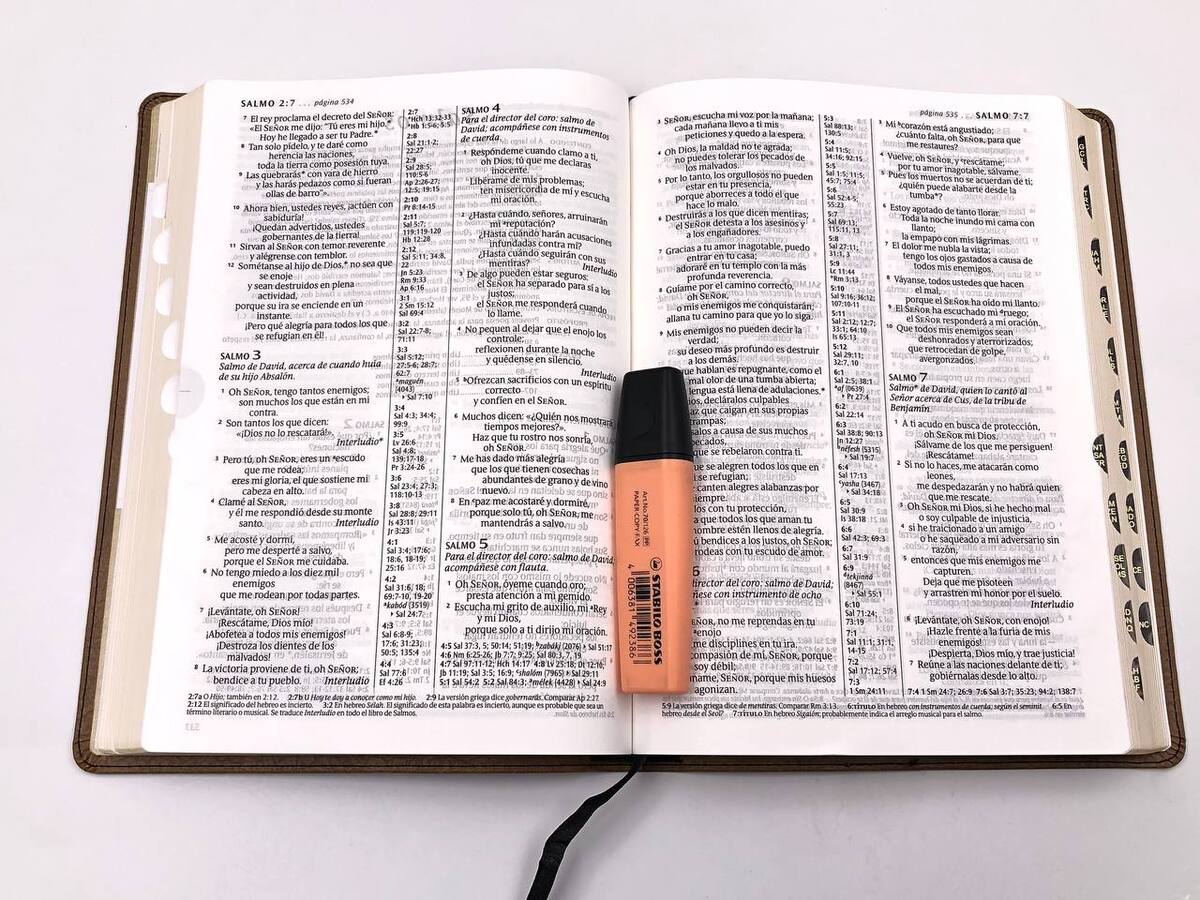 SALMO 2:7 ... página 534
7 El rey proclama el decreto del SEÑOR:
«El SEÑOR me dijo: "Tú eres mi hijo.*
Hoy he llegado a ser tu Padre.*
8 Tan solo pídelo, y te daré como
herencia las naciones,
toda la tierra como posesión tuya.
9 Las quebrarás* con vara de hierro
y las harás pedazos como si fueran
ollas de barro"».
10 Ahora bien, ustedes reyes, ¡actúen con
sabiduría!
¡Quedan advertidos, ustedes
gobernantes de la tierra!
11 Sirvan al SEÑOR con temor reverente
y alégrense con temblor.
12 Sométanse al hijo de Dios,* no sea que
se enoje
y sean destruidos en plena
actividad,
porque su ira se enciende en un
instante.
¡Pero qué alegría para todos los que
se refugian en él!
SALMO 3
Salmo de David, acerca de cuando huía
de su hijo Absalón.
1 Oh SEÑOR, tengo tantos enemigos;
son muchos los que están en mi
contra.
2 Son tantos los que dicen:
«¡Dios no lo rescatará!».
Interludio*
3 Pero tú, oh SEÑOR, eres un escudo
que me rodea;
eres mi gloria, el que sostiene mi
cabeza en alto.
4 Clamé al SEÑOR,
y él me respondió desde su monte
santo.
Interludio
5 Me acosté y dormí,
pero me desperté a salvo,
porque el SEÑOR me cuidaba.
6 No tengo miedo a los diez mil
enemigos
que me rodean por todas partes.
7 ¡Levántate, oh SEÑOR!
¡Rescátame, Dios mío!
¡Abofetea a todos mis enemigos!
¡Destroza los dientes de los
malvados!
8 La victoria proviene de ti, oh SEÑOR;
bendice a tu pueblo.
Interludio
2:7
*Hch 13:32-33
*Hb 1:5-6; 5:5
2:8
Sal 21:1-2;
22:27
2:9
Sal 28:5;
110:5-6
Ap 2:26-27;
12:5; 19:15
2:10
Pr 8:14-15
2:11
Sal 5:7;
119:119-120
Hb 12:28
2:12
Sal 5:11; 34:8,
22
Jn 5:23
Ap 6:16
3:1
2 Sm 15:12
Sal 69:4
3:2
Sal 22:7-8;
71:11
3:3
Sal 5:12;
27:5-6; 28:7;
62:7
*maguén
(4043)
Sal 7:10
3:4
Sal 4:3; 34:4;
99:9
3:5
Lv 26:6
Sal 4:8;
139:17-18
Pr 3:24-26
3:6
Sal 23:4; 27:3;
118:10-13
3:8
Sal 28:8; 29:11
Is 43:11
Jr 3:23
4:1
Sal 3:4; 17:6;
18:6, 18-19;
25:16
4:2
Sal 31:6, 18;
69:7-10, 19-20
*kabód (3519)
Sal 24:7
4:3
Sal 6:8-9;
17:6; 31:23;
50:5; 135:4
4:4
Sal 77:6
Ef 4:26
SALMO 4
Para el director del coro: salmo de
David; acompáñese con instrumentos
de cuerda.
1 Respóndeme cuando clamo a ti,
oh Dios, tú que me declaras
inocente.
Libérame de mis problemas;
ten misericordia de mí y escucha
mi oración.
2 ¿Hasta cuándo, señores, arruinarán
mi reputación?
¿Hasta cuándo harán acusaciones
infundadas contra mí?
¿Hasta cuándo seguirán con sus
mentiras?
Interludio
3 De algo pueden estar seguros:
el SEÑOR ha separado para sí a los
justos;
el SEÑOR me responderá cuando
lo llame.
4 No pequen al dejar que el enojo los
controle;
reflexionen durante la noche
y quédense en silencio.
Interludio
5 Ofrezcan sacrificios con un espíritu
correcto
y confíen en el SEÑOR.
6 Muchos dicen: «¿Quién nos mostrará
tiempos mejores?».
Haz que tu rostro nos sonría,
oh SEÑOR.
7 Me has dado más alegría
que los que tienen cosechas
abundantes de grano y de vino
nuevo.
8 En paz me acostaré y dormiré,
porque solo tú, oh SEÑOR, me
mantendrás a salvo.
SALMO 5
Para el director del coro: salmo de David;
acompáñese con flauta.
1 Oh SEÑOR, óyeme cuando oro;
presta atención a mi gemido.
2 Escucha mi grito de auxilio, mi Rey
y mi Dios,
porque solo a ti dirijo mi oración.
4:5 Sal 37:3, 5; 50:14; 51:19; *zabákj (2076) Sal 51:17
4:6 Nm 6:25-26; Jb 7:7; 9:25; Sal 80:3, 7, 19
4:7 Sal 97:11-12; Hch 14:17 4:8 Lv 25:18; Dt 12:10;
Jb 11:19; Sal 3:5; 16:9; *shalóm (7965) Sal 29:11
5:1 Sal 54:2 5:2 Sal 84:3; *mélek (4428) Sal 24:9
2:7a O Hijo; también en 2:12. 2:7b U Hoy te doy a conocer como mi hijo. 2:9 La versión griega dice gobernarás. Comparar Ap 2:27.
2:12 El significado del hebreo es incierto. 3:2 En hebreo Selah. El significado de esta palabra es incierto, aunque es probable que sea un
término literario o musical. Se traduce Interludio en todo el libro de Salmos.
página 535 ... SALMO 7:7
3 SEÑOR, escucha mi voz por la mañana;
cada mañana llevo a ti mis
peticiones y quedo a la espera.
4 Oh Dios, la maldad no te agrada;
no puedes tolerar los pecados de
los malvados.
5 Por lo tanto, los orgullosos no pueden
estar en tu presencia,
porque aborreces a todo el que
hace lo malo.
6 Destruirás a los que dicen mentiras;
el SEÑOR detesta a los asesinos y
a los engañadores.
7 Gracias a tu amor inagotable, puedo
entrar en tu casa;
adoraré en tu templo con la más
profunda reverencia.
8 Guíame por el camino correcto,
oh SEÑOR,
o mis enemigos me conquistarán;
allana tu camino para que yo lo siga.
9 Mis enemigos no pueden decir la
verdad;
su deseo más profundo es destruir
a los demás.
que hablan es repugnante, como el
mal olor de una tumba abierta;
lengua está llena de adulaciones.*
decláralos culpables
que caigan en sus propias
trampas;
a causa de sus muchos
pecados,
se rebelaron contra ti.
se alegren todos los que en
se refugian;
canten alegres alabanzas por
siempre.
con tu protección,
que todos los que aman tu
nombre estén llenos de alegría.
bendices a los justos, oh SEÑOR;
rodeas con tu escudo de amor.
6
director del coro: salmo de David;
con instrumento de ocho
SEÑOR, no me reprendas en tu
enojo
me disciplines en tu ira.
compasión de mí, SEÑOR, porque
soy débil;
SEÑOR, porque mis huesos
agonizan.
5:3
Sal 88:13;
130:5
5:4
Sal 11:5;
34:16; 92:15
5:5
Sal 1:5; 11:5;
45:7; 75:4
5:6
Sal 52:4-5;
55:23
5:7
Sal 69:13;
115:11, 13
5:8
Sal 27:11;
31:1, 3
5:9
Lc 11:44
*Rm 3:13
5:10
Sal 9:16; 36:12;
107:10-11
5:11
Sal 2:12; 12:7;
33:1; 64:10
Is 65:13
5:12
Sal 29:11;
32:7, 10
6:1
Sal 2:5; 38:1
*af (0639)
Pr 27:4
6:2
Sal 22:14
6:3
Sal 38:8; 90:13
Jn 12:27
*néfesh (5315)
Sal 19:7
6:4
Sal 17:13
*yasha (3467)
Sal 34:18
6:5
Sal 30:9
Is 38:18
6:6
Sal 42:3; 69:3
6:7
Sal 31:9
6:9
*tekjinná
(8467)
Sal 55:1
6:10
Sal 71:24;
73:19
7:1
Sal 11:1; 31:1,
14-15
7:2
Sal 17:12; 57:4
7:3
1 Sm 24:11
3 Mi corazón está angustiado;
¿cuánto falta, oh SEÑOR, para que
me restaures?
4 Vuelve, oh SEÑOR, y rescátame;
por tu amor inagotable, sálvame.
5 Pues los muertos no se acuerdan de ti;
¿quién puede alabarte desde la
tumba*?
6 Estoy agotado de tanto llorar.
Toda la noche inundo mi cama con
llanto;
la empapo con mis lágrimas.
7 El dolor me nubla la vista;
tengo los ojos gastados a causa de
todos mis enemigos.
8 Váyanse, todos ustedes que hacen
el mal,
porque el SEÑOR ha oído mi llanto.
9 El SEÑOR ha escuchado mi ruego;
el SEÑOR responderá a mi oración.
10 Que todos mis enemigos sean
deshonrados y aterrorizados;
que retrocedan de golpe,
avergonzados.
SALMO 7
Salmo* de David, quien lo cantó al
SEÑOR acerca de Cus, de la tribu de
Benjamín.
1 A ti acudo en busca de protección,
oh SEÑOR mi Dios.
¡Sálvame de los que me persiguen!
¡Rescátame!
2 Si no lo haces, me atacarán como
leones,
me despedazarán y no habrá quien
que me rescate.
3 Oh SEÑOR mi Dios, si he hecho mal
o soy culpable de injusticia,
4 si he traicionado a un amigo
o he saqueado a mi adversario sin
razón,
5 entonces que mis enemigos me
capturen.
Deja que me pisoteen
y arrastren mi honor por el suelo.
Interludio
6 ¡Levántate, oh SEÑOR, con enojo!
¡Hazle frente a la furia de mis
enemigos!
¡Despierta, Dios mío, y trae justicia!
7 Reúne a las naciones delante de ti;
gobiérnalas desde lo alto.
7:4 1 Sm 24:7; 26:9 7:6 Sal 3:7; 35:23; 94:2; 138:7
5:9 La versión griega dice de mentiras. Comparar Rm 3:13. 6:TÍTULO En hebreo con instrumentos de cuerda; según el seminit. 6:5 En
hebreo desde el Seol? 7:TÍTULO En hebreo Sigaión; probablemente indica el arreglo musical para el salmo.
Art. No. 70/126
PAPER-COPY-FAX
STABILO BOSS
4 006381 492386